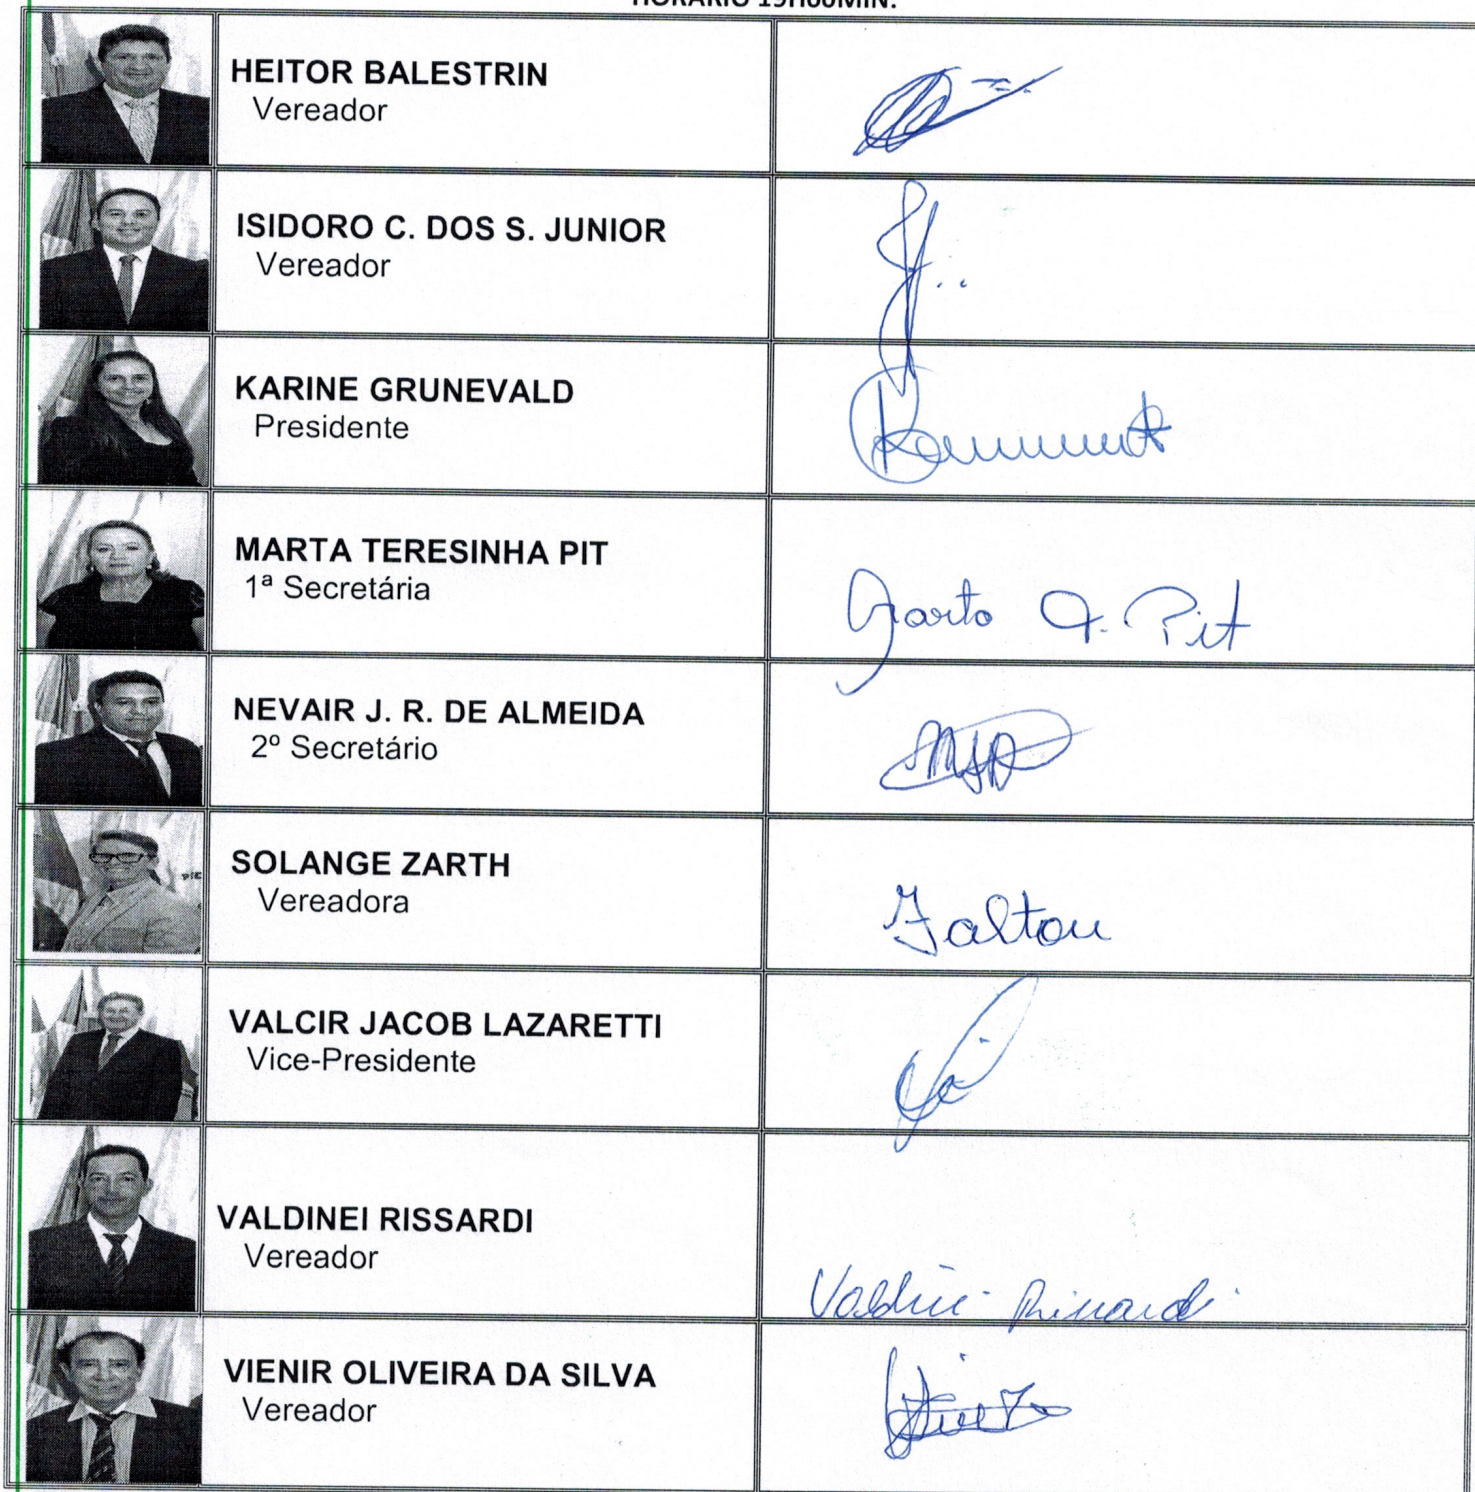 HORÁRIO 19H00MIN.
HEITOR BALESTRIN
Vereador
ISIDORO C. DOS S. JUNIOR
Vereador
KARINE GRUNEVALD
Presidente
MARTA TERESINHA PIT
1ª Secretária
Marta T. Pit
NEVAIR J. R. DE ALMEIDA
2º Secretário
SOLANGE ZARTH
Vereadora
Faltou
VALCIR JACOB LAZARETTI
Vice-Presidente
VALDINEI RISSARDI
Vereador
Valdinei Rissardi
VIENIR OLIVEIRA DA SILVA
Vereador